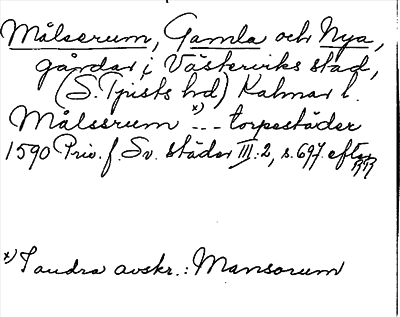 Målserum, Gamla och Nya,
gårdar i Västerviks stad,
(S. Tjusts hd) Kalmar l.
Målserum x) - - - torpestäder
1590 Priv. f. Sv. städer III:2, s. 697. efter
x) I andra avskr.: Mansorum